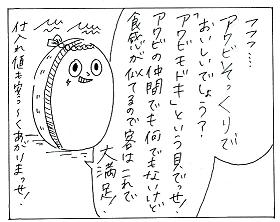 フフフ…
アワビそっくりで
おいしいでしょう?
「アワビモドキ」という貝でっせ!
アワビの仲間でも何でもないけど
食感が似てるので客はこれで
大満足!
仕入れ値も安〜くあがりまっせ!